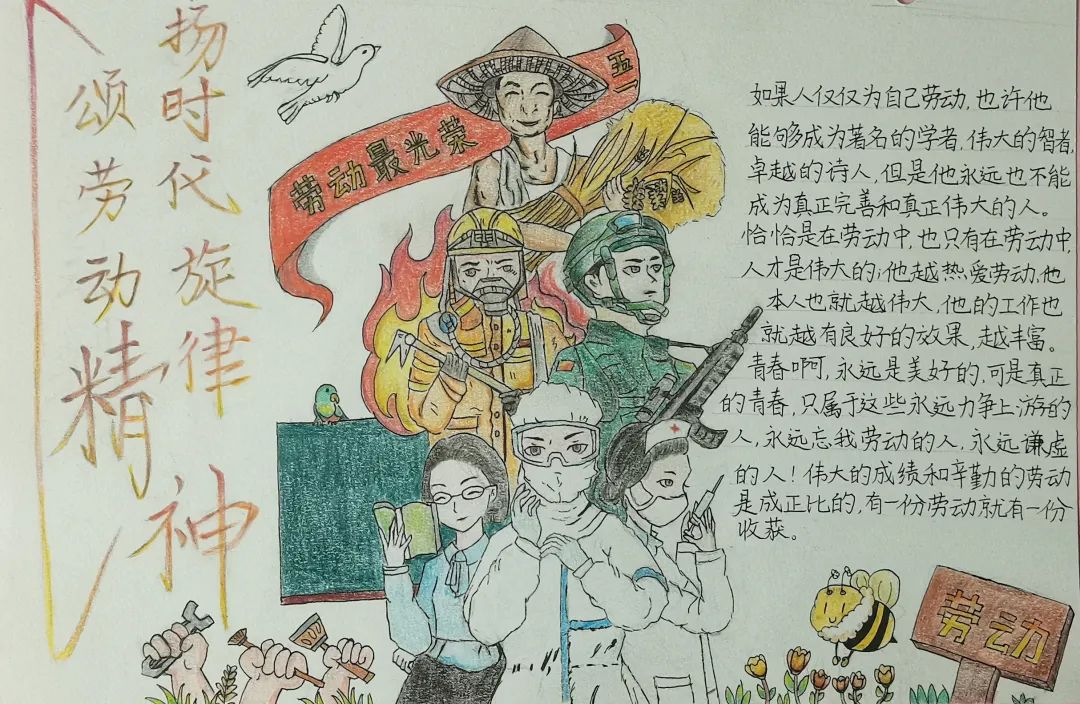 颂劳动精神
扬时代旋律
劳动最光荣
五一
如果人仅仅为自己劳动,也许他
能够成为著名的学者,伟大的智者,
卓越的诗人,但是他永远也不能
成为真正完善和真正伟大的人。
恰恰是在劳动中,也只有在劳动中,
人才是伟大的;他越热爱劳动,他
本人也就越伟大,他的工作也
就越有良好的效果,越丰富。
青春啊,永远是美好的,可是真正
的青春,只属于这些永远力争上游的
人,永远忘我劳动的人,永远谦虚
的人!伟大的成绩和辛勤的劳动
是成正比的,有一份劳动就有一份
收获。
劳动